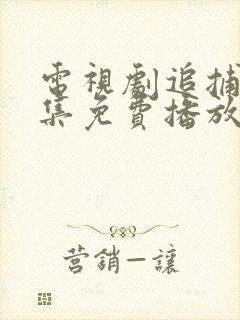 電視劇追捕
集免費播放
营銷—讓